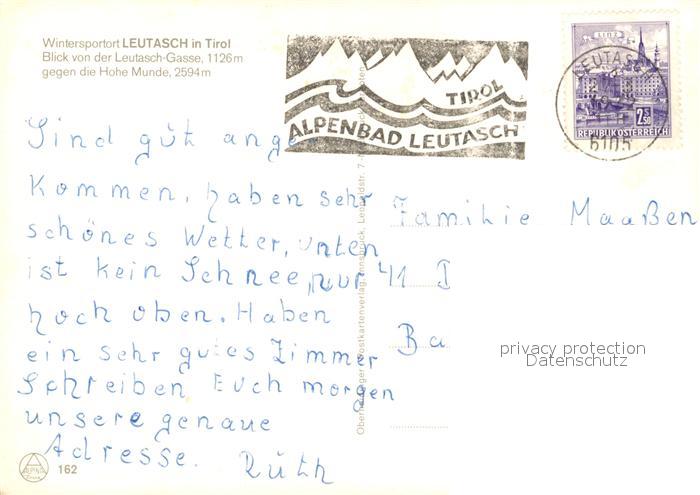 Wintersportort LEUTASCH in Tirol
Blick von der Leutasch-Gasse, 1126m
gegen die Hohe Munde, 2594m
TIROL
ALPENBAD LEUTASCH
LINZ
2.50
REPUBLIK ÖSTERREICH
LEUTASCH
6105
Sind gut ange
kommen, haben sehr
schönes Wetter, unten
ist kein Schnee, nur
hoch oben. Haben
ein sehr gutes Zimmer
Schreiben Euch morgen
unsere genaue
Adresse. Ruth
Familie Maaßen
41 I
Ba
privacy protection
Datenschutz
ALPINA
162